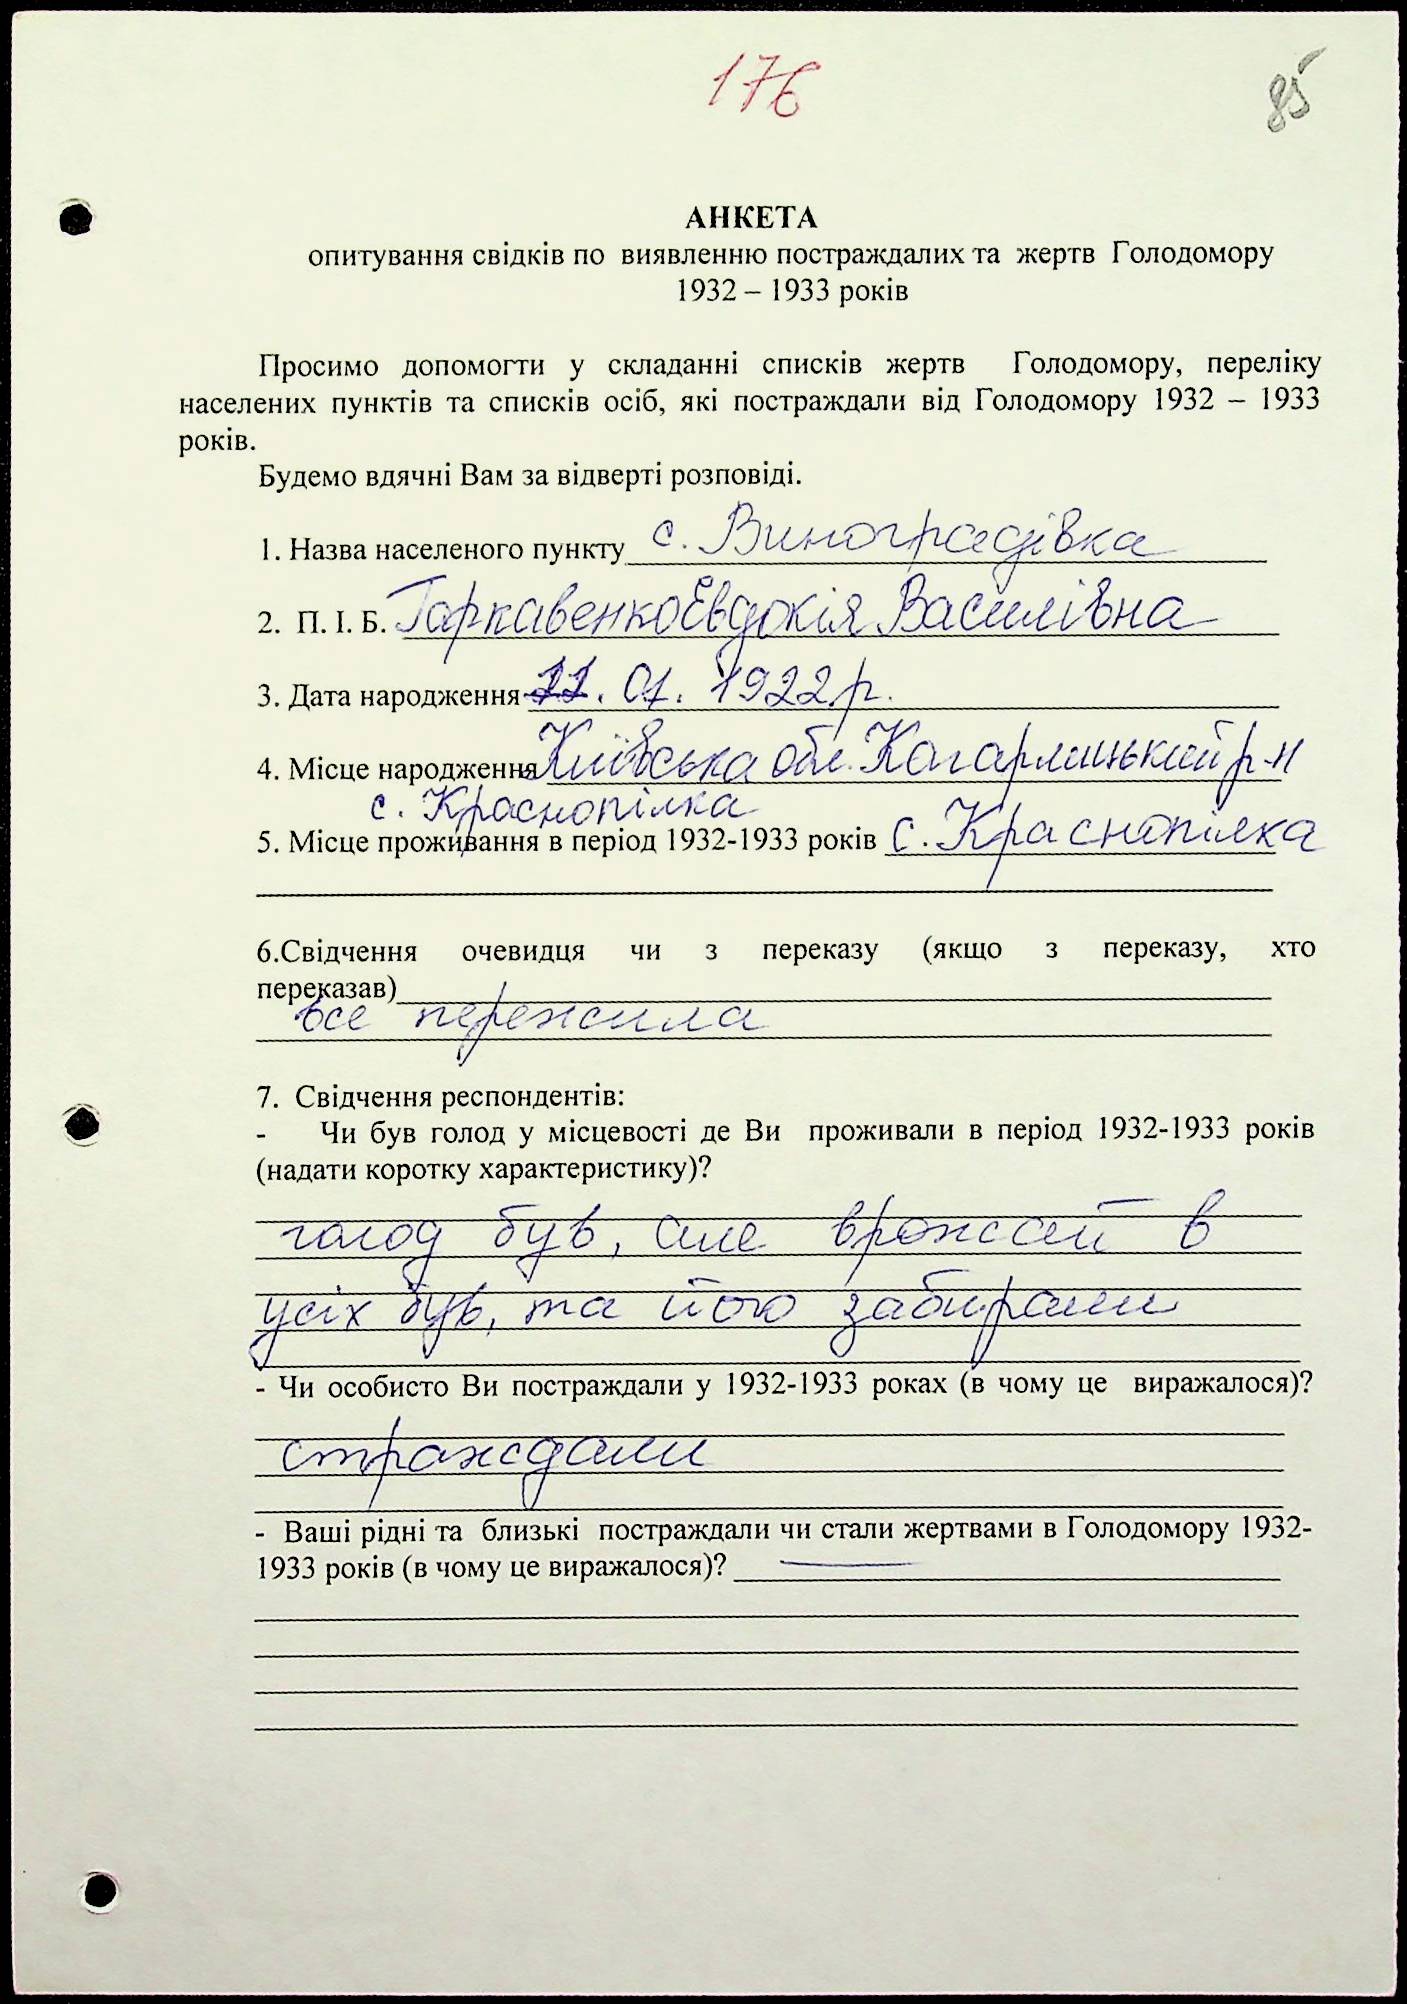 176
85
АНКЕТА
опитування свідків по виявленню постраждалих та жертв Голодомору
1932 – 1933 років
Просимо допомогти у складанні списків жертв Голодомору, переліку
населених пунктів та списків осіб, які постраждали від Голодомору 1932 – 1933
років.
Будемо вдячні Вам за відверті розповіді.
1. Назва населеного пункту с. Виноградівка
2. П. І. Б. Гаркавенко Євдокія Василівна
3. Дата народження 22. 01. 1922 р.
4. Місце народження Київська обл. Кагарлицький р-н
с. Краснопілка
5. Місце проживання в період 1932-1933 років с. Краснопілка
6.Свідчення очевидця чи з переказу (якщо з переказу, хто
переказав)
все пережила
7. Свідчення респондентів:
- Чи був голод у місцевості де Ви проживали в період 1932-1933 років
(надати коротку характеристику)?
голод був, але врожай в
усіх був, та його забирали
- Чи особисто Ви постраждали у 1932-1933 роках (в чому це виражалося)?
страждали
- Ваші рідні та близькі постраждали чи стали жертвами в Голодомору 1932-
1933 років (в чому це виражалося)? —